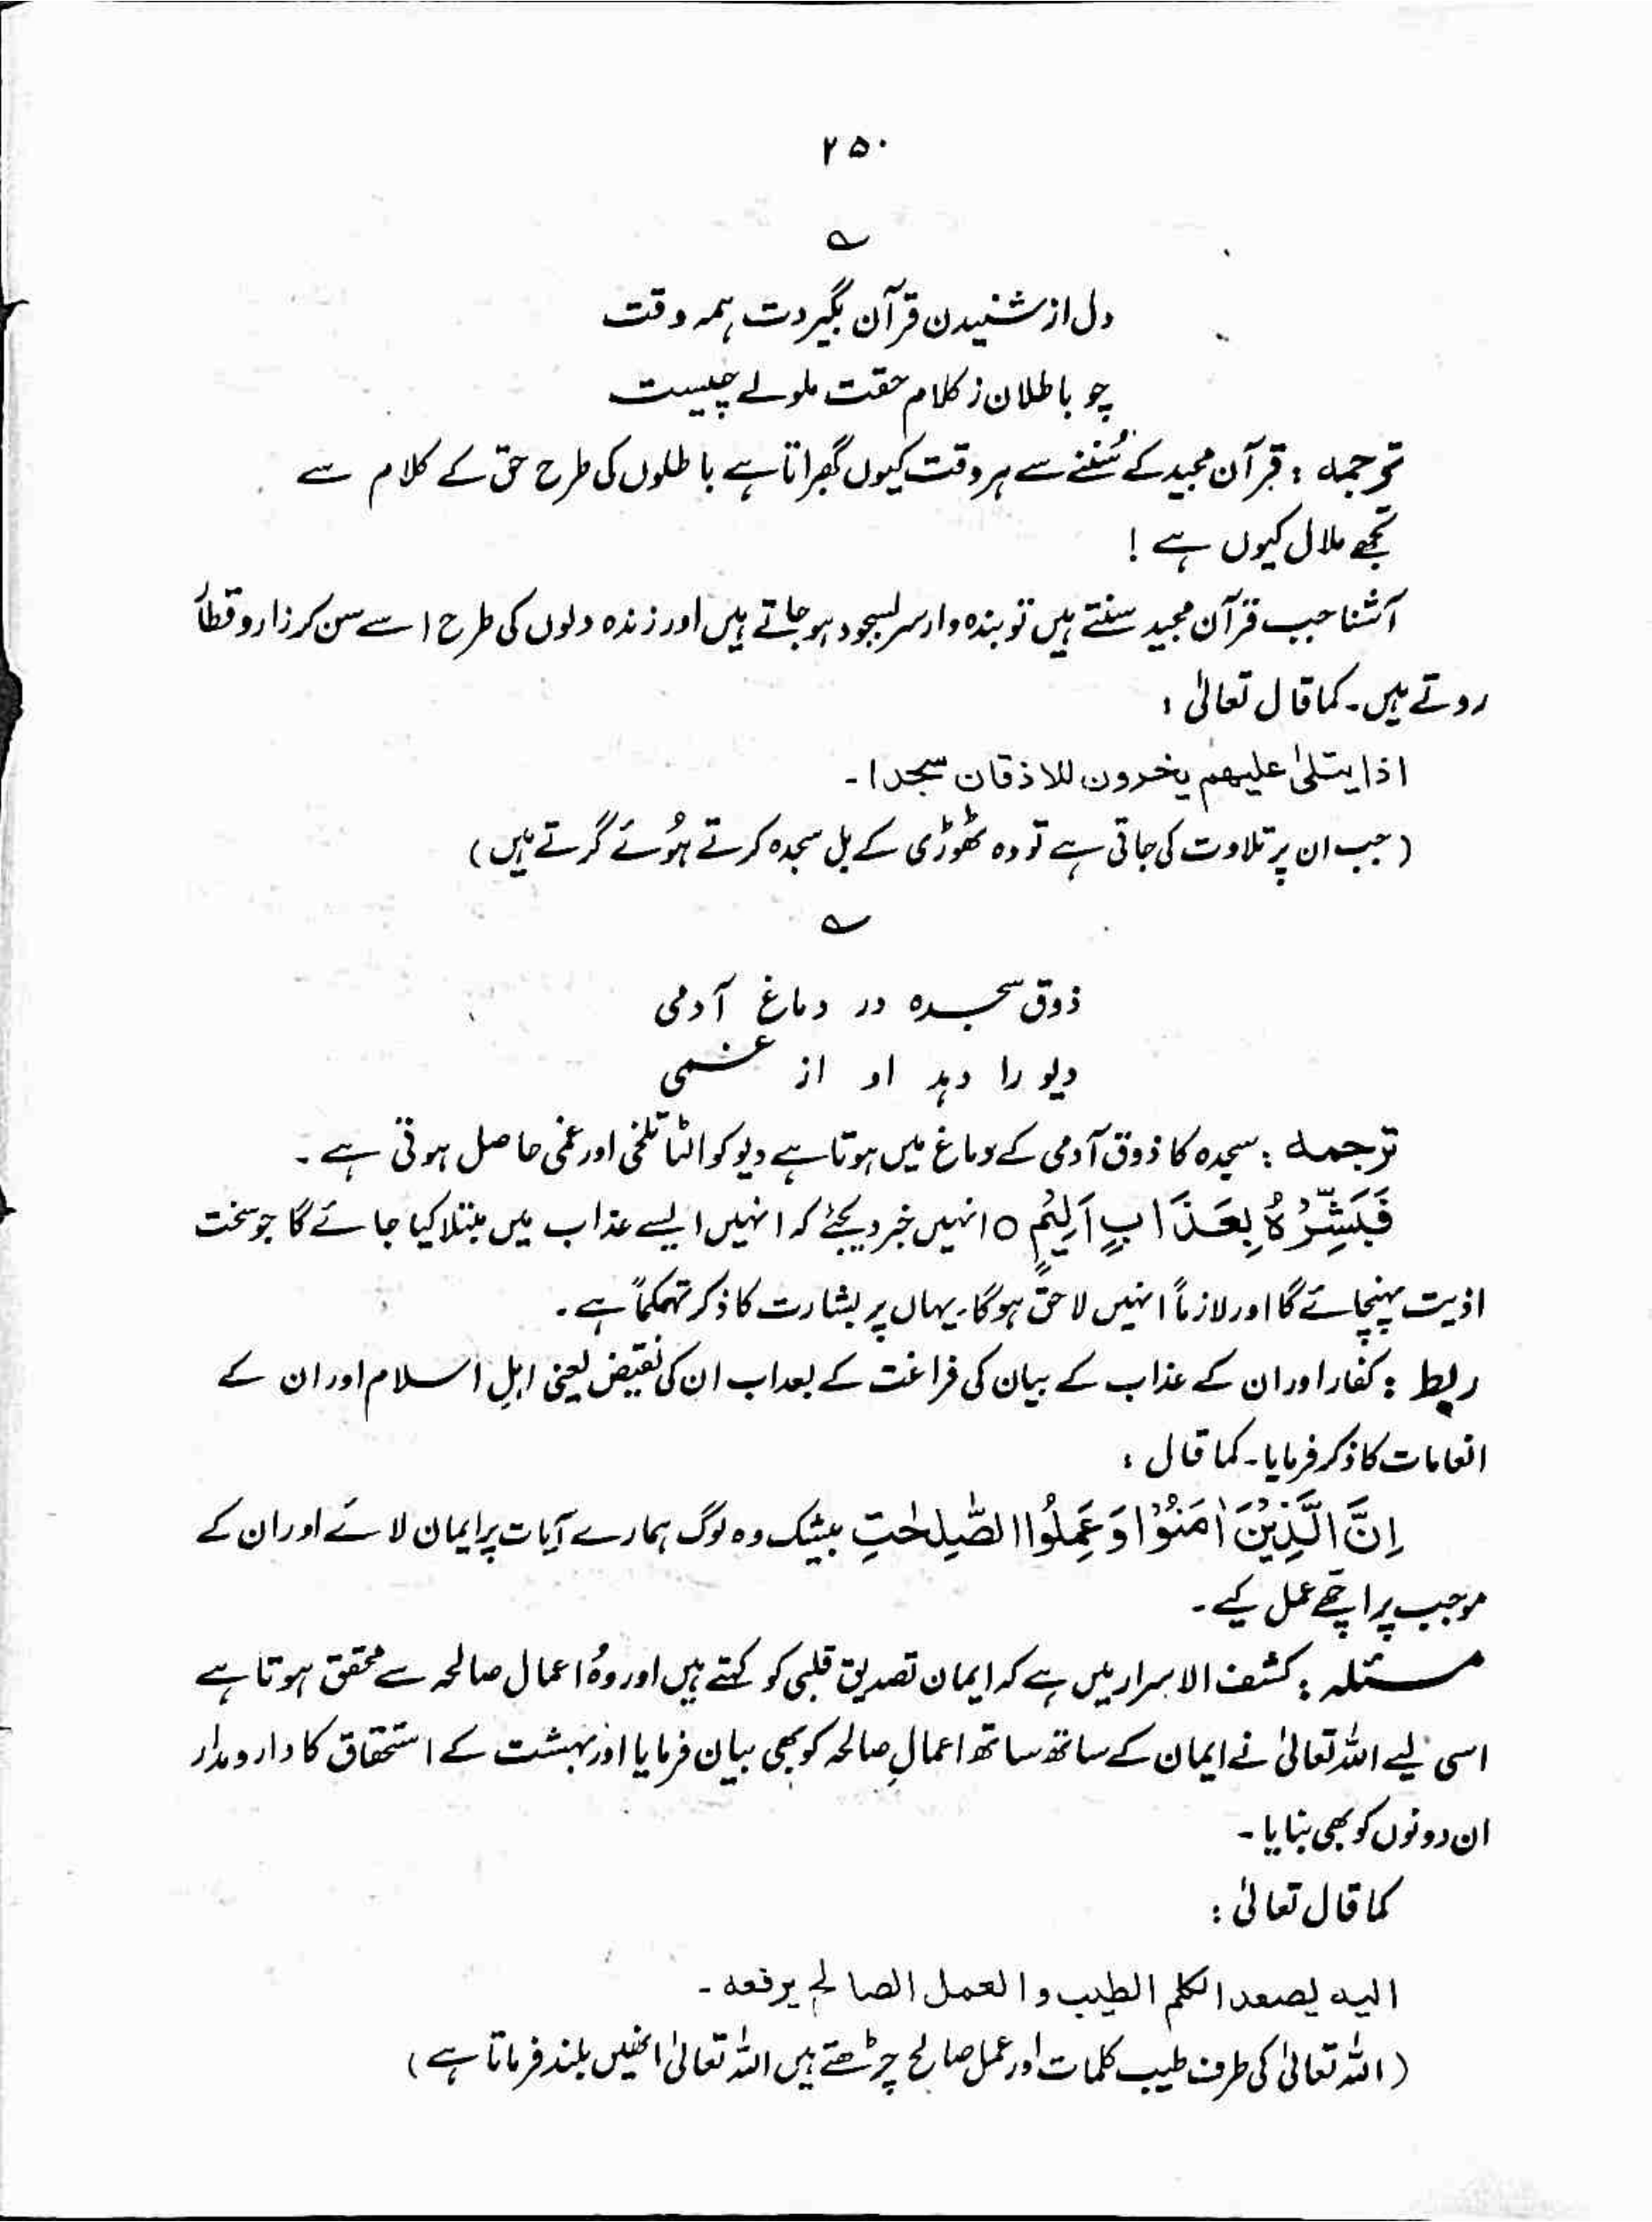 ۲۵۰
؎
دل از شنیدن قرآن بگیردت ہمہ وقت
چو باطلان ز کلام حقت ملولے چیست
ترجمہ : قرآن مجید کے سُننے سے ہر وقت کیوں گھبراتا ہے باطلوں کی طرح حق کے کلام سے
تجھے ملال کیوں ہے !
آشنا جب قرآن مجید سنتے ہیں تو بندہ وار سر بسجود ہو جاتے ہیں اور زندہ دلوں کی طرح اسے سن کر زار و قطار
روتے ہیں۔ کما قال تعالیٰ :
اذا یتلیٰ علیھم یخرون للاذقان سجدا۔
(جب ان پر تلاوت کی جاتی ہے تو وہ ٹھوڑی کے بل سجدہ کرتے ہُوئے گرتے ہیں)
؎
ذوق سجدہ در دماغ آدمی
دیو را دہد او از غمی
ترجمہ : سجدہ کا ذوق آدمی کے دماغ میں ہوتا ہے دیو کو الٹا تلخی اور غمی حاصل ہوتی ہے ۔
فَبَشِّرْهُ بِعَذَابٍ اَلِیْمٍ ○ انہیں خبر دیجئے کہ انہیں ایسے عذاب میں مبتلا کیا جائے گا جو سخت
اذیت پہنچائے گا اور لازماً انہیں لاحق ہوگا۔ یہاں پر بشارت کا ذکر تہکماً ہے ۔
ربط : کفار اور ان کے عذاب کے بیان کی فراغت کے بعد اب ان کی نقیض یعنی اہلِ اسلام اور ان کے
انعامات کا ذکر فرمایا۔ کما قال :
اِنَّ الَّذِیْنَ اٰمَنُوْا وَعَمِلُوا الصّٰلِحٰتِ بیشک وہ لوگ ہمارے آیات پر ایمان لائے اور ان کے
موجب پر اچھے عمل کیے ۔
مسئلہ : کشف الاسرار میں ہے کہ ایمان تصدیق قلبی کو کہتے ہیں اور وہُ اعمال صالحہ سے محقق ہوتا ہے
اسی لیے اللہ تعالیٰ نے ایمان کے ساتھ ساتھ اعمالِ صالحہ کو بھی بیان فرمایا اور بہشت کے استحقاق کا دارومدار
ان دونوں کو بھی بنایا ۔
کما قال تعالیٰ :
الیہ یصعد الکلم الطیب و العمل الصالح یرفعہ ۔
(اللہ تعالیٰ کی طرف طیب کلمات اور عمل صالح چڑھتے ہیں اللہ تعالیٰ انھیں بلند فرماتا ہے)